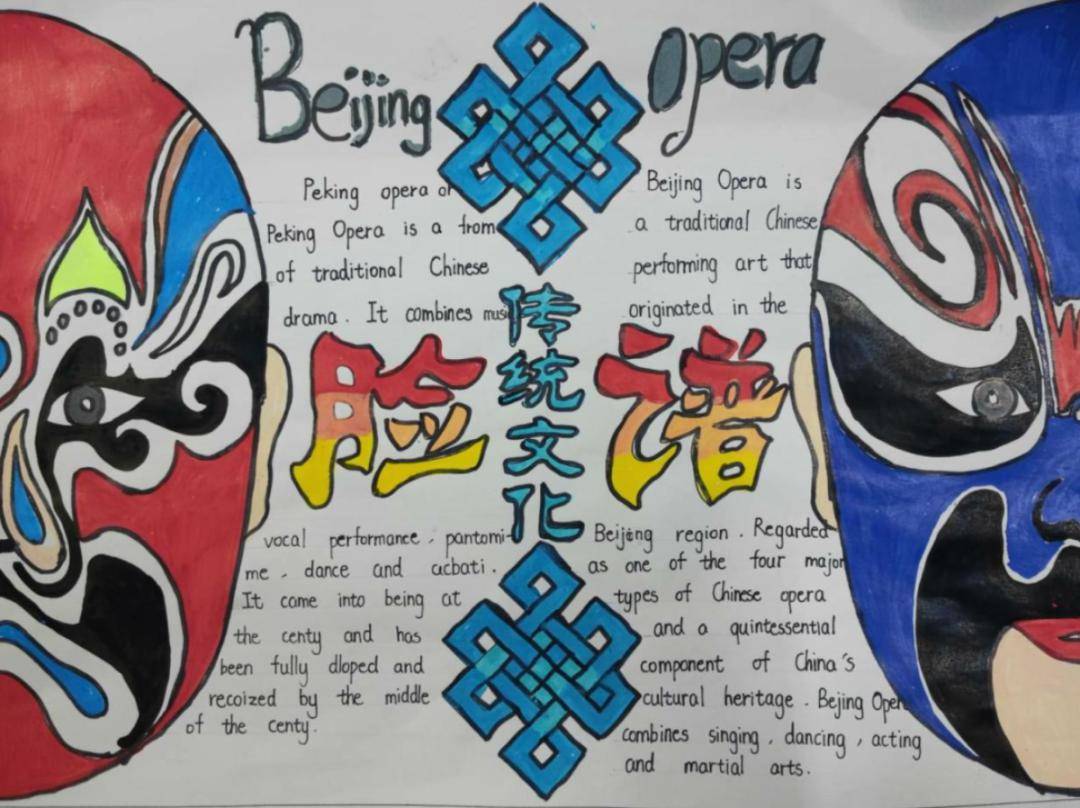 Beijing Opera
Peking opera or
Peking Opera is a from
of traditional Chinese
drama. It combines musi
vocal performance, pantomi-
me, dance and acbati.
It come into being at
the centy and has
been fully dloped and
recoized by the middle
of the centy.
传统文化
脸谱
Beijing Opera is
a traditional Chinese
performing art that
originated in the
Beijing region. Regarded
as one of the four major
types of Chinese opera
and a quintessential
component of China's
cultural heritage. Bejing Oper
combines singing, dancing, acting
and martial arts.